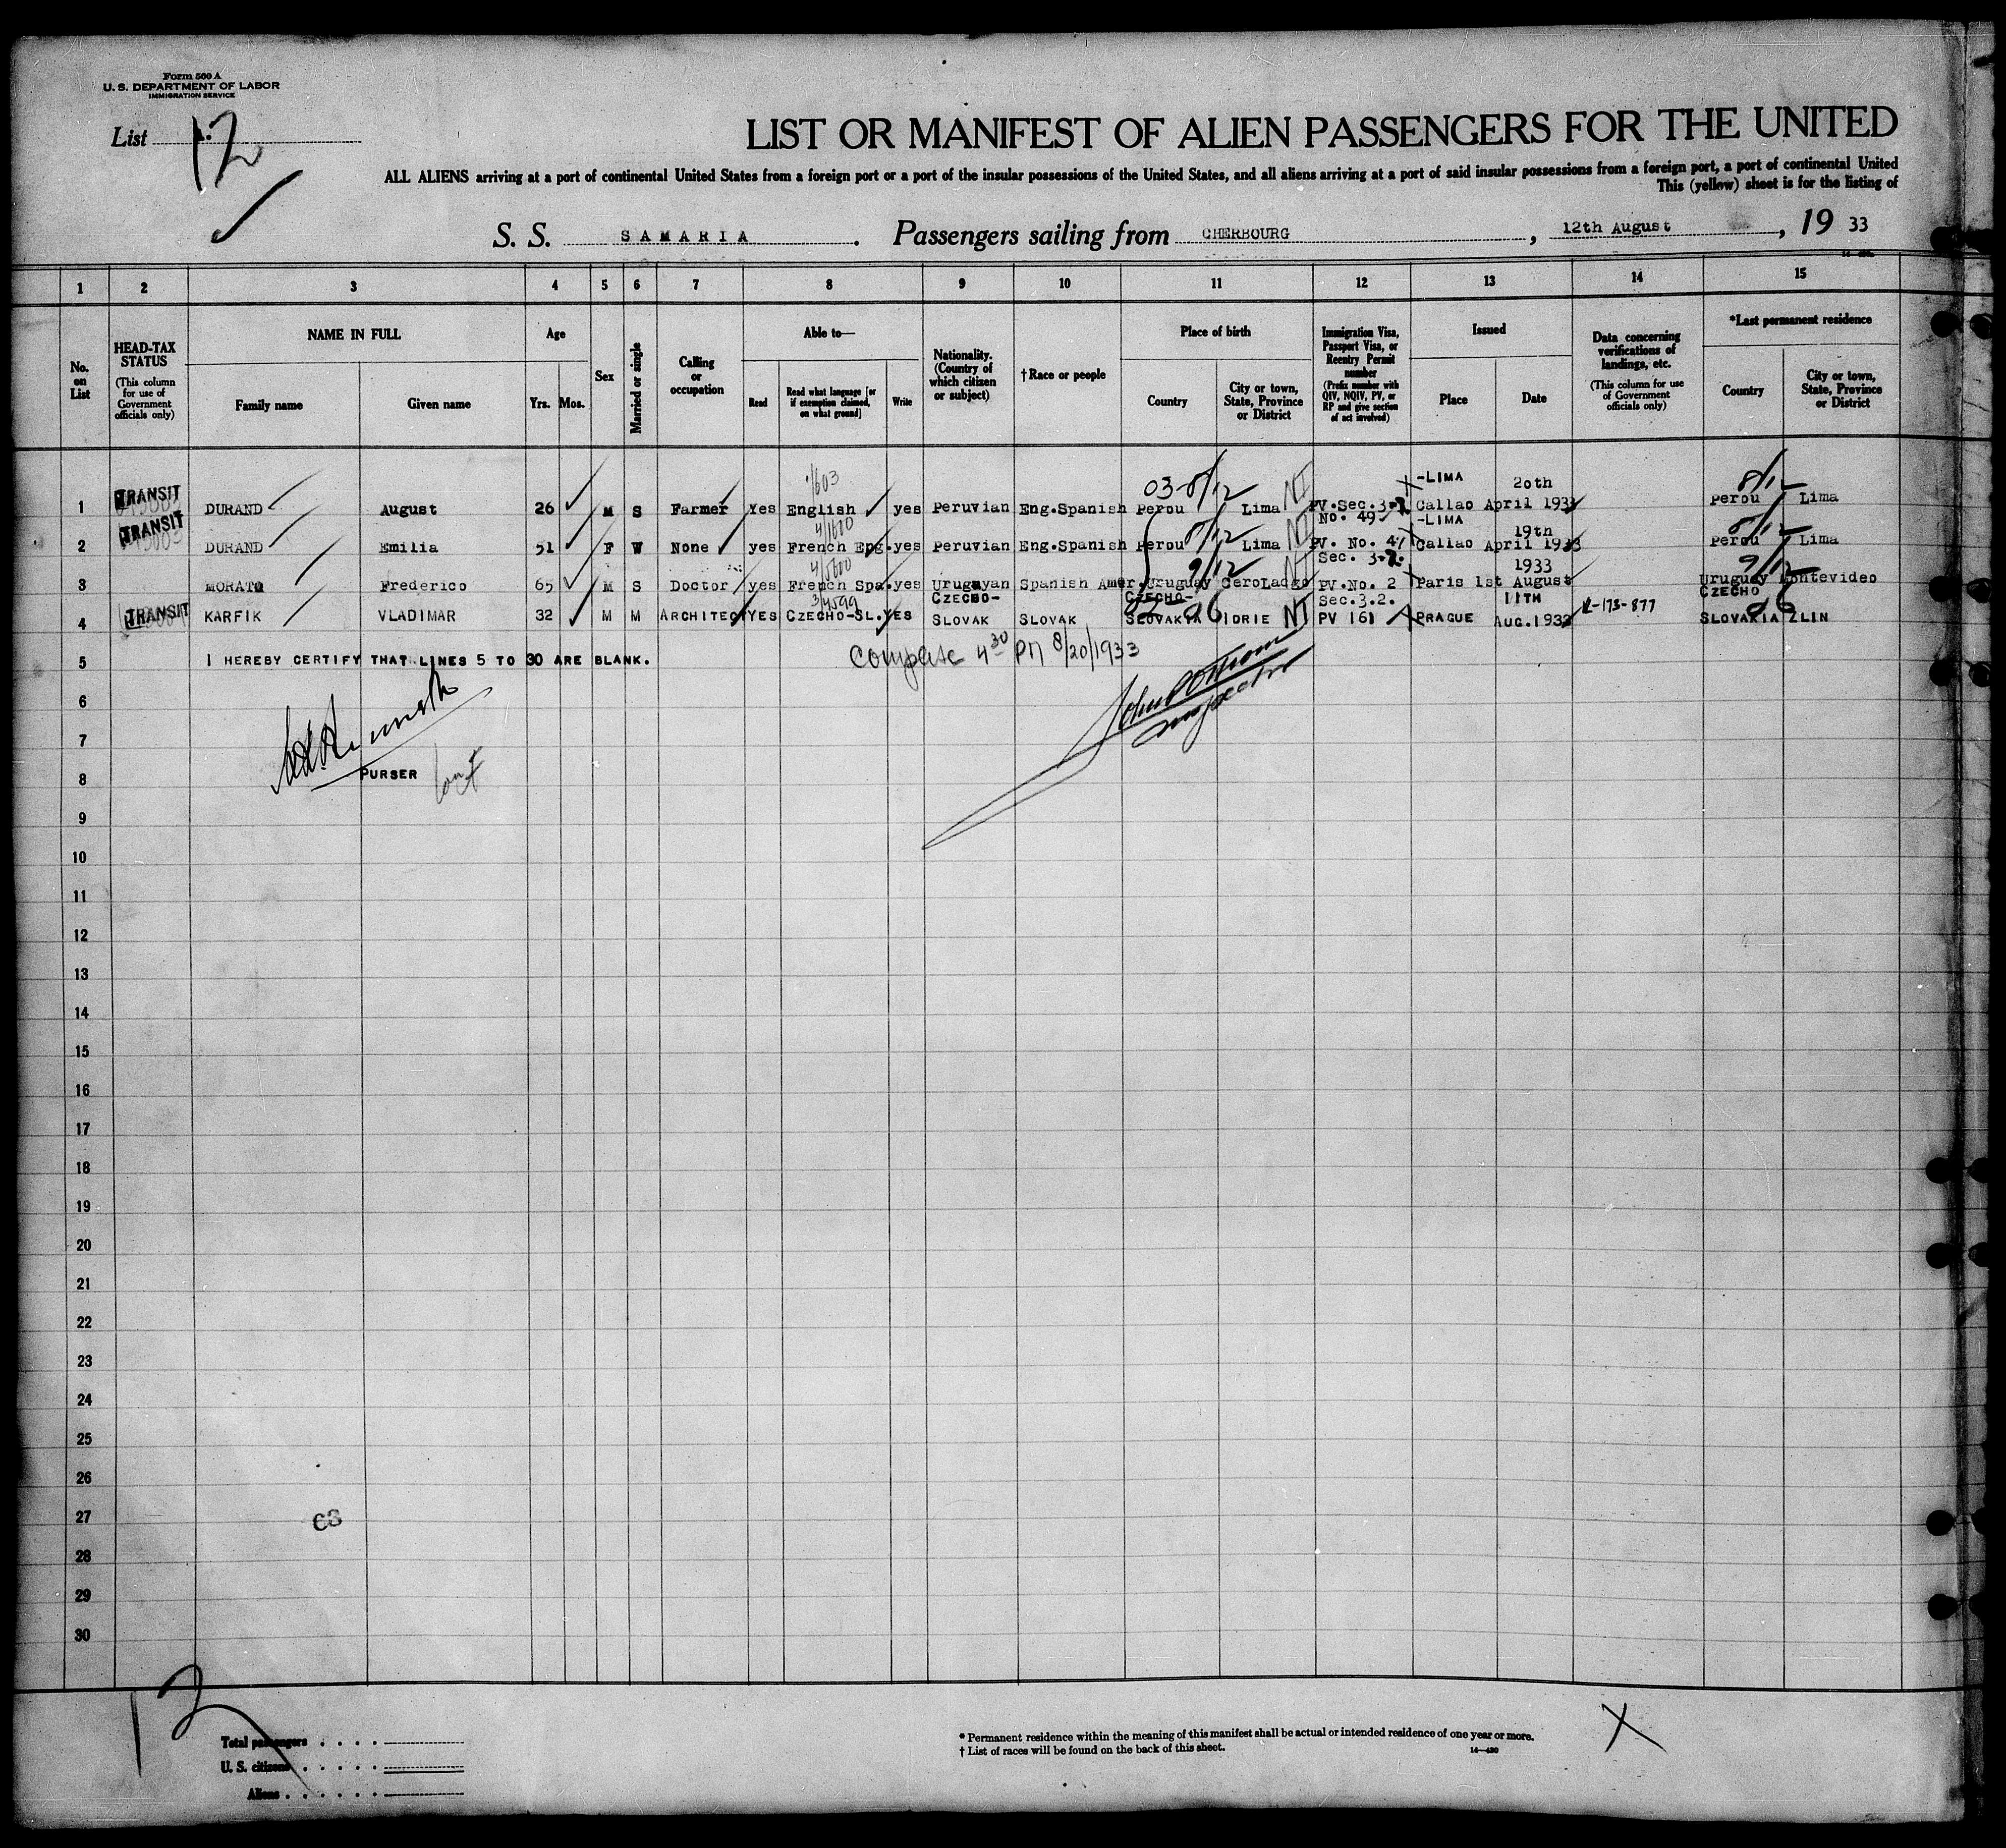 Form 500 A
U. S. DEPARTMENT OF LABOR
IMMIGRATION SERVICE
List 12
LIST OR MANIFEST OF ALIEN PASSENGERS FOR THE UNITED
ALL ALIENS arriving at a port of continental United States from a foreign port or a port of the insular possessions of the United States, and all aliens arriving at a port of said insular possessions from a foreign port, a port of continental United
This (yellow) sheet is for the listing of
S. S. SAMARIA . Passengers sailing from CHERBOURG , 12th August , 19 33
1 2 3 4 5 6 7 8 9 10 11 12 13 14 15
No. on List
HEAD-TAX STATUS (This column for use of Government officials only)
NAME IN FULL
Family name
Given name
Age
Yrs. Mos.
Sex
Married or single
Calling or occupation
Able to—
Read
Read what language [or if exemption claimed, on what ground]
Write
Nationality. (Country of which citizen or subject)
† Race or people
Place of birth
Country
City or town, State, Province or District
Immigration Visa, Passport Visa, or Reentry Permit number (Prefix number with QIV, NQIV, PV, or RP and give section of act involved)
Issued
Place
Date
Data concerning verifications of landings, etc. (This column for use of Government officials only)
*Last permanent residence
Country
City or town, State, Province or District
1 TRANSIT DURAND August 26 M S Farmer Yes English yes Peruvian Eng.Spanish Perou Lima NT PV.Sec.3-2 No. 49 -LIMA Callao 20th April 1933 Perou Lima
2 TRANSIT DURAND Emilia 51 F W None yes French Epg. yes Peruvian Eng.Spanish Perou Lima NT PV. No. 47 Sec. 3-2. -LIMA Callao 19th April 1933 Perou Lima
3 MORATO Frederico 65 M S Doctor yes French Spa. yes Urugayan Spanish Amer. Uruguay CeroLadgo PV.No. 2 Sec.3.2. Paris 1st August 1933 Uruguay Montevideo
4 TRANSIT KARFIK VLADIMAR 32 M M ARCHITECT YES CZECHO-SL. YES CZECHO-SLOVAK SLOVAK CZECHO-SLOVAKIA IDRIE NT PV 161 PRAGUE 11TH AUG.1933 V-173-877 CZECHO SLOVAKIA ZLIN
5 I HEREBY CERTIFY THAT LINES 5 TO 30 ARE BLANK.
Complete 4 30 PM 8/20/1933
Inspector
6
7
8 PURSER
9
10
11
12
13
14
15
16
17
18
19
20
21
22
23
24
25
26
27
28
29
30
12
Total passengers
U. S. citizens
Aliens
* Permanent residence within the meaning of this manifest shall be actual or intended residence of one year or more.
† List of races will be found on the back of this sheet.
14—420